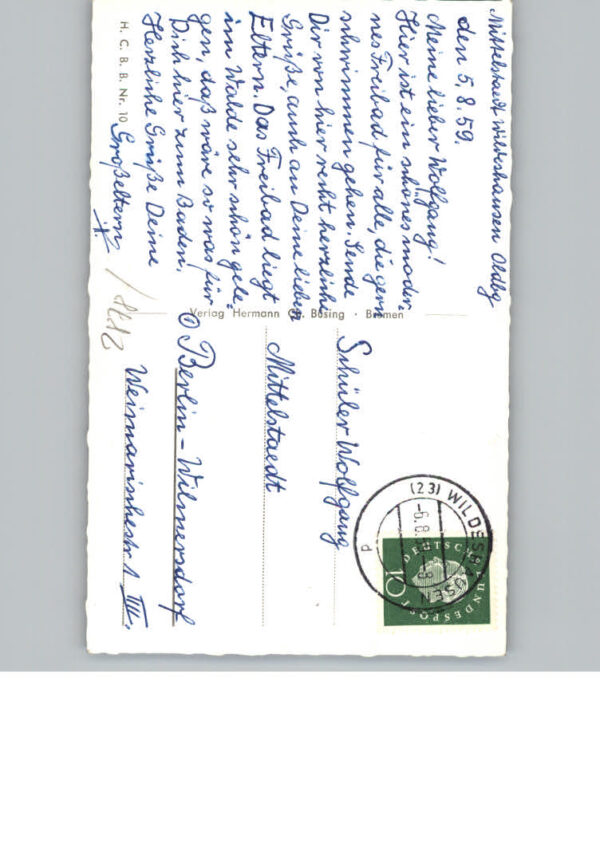 Mittelstaedt Wildeshausen Oldbg
den 5.8.59.
Meine lieber Wolfgang!
Hier ist ein schönes moder-
nes Freibad für alle, die gern
schwimmen gehen. Sende
Dir von hier recht herzliche
Grüße, auch an Deine lieben
Eltern. Das Freibad liegt
im Walde sehr schön gele-
gen, daß wäre so was für
Dich hier zum Baden.
Herzliche Grüße Deine
Großeltern
H. C. B. B. Nr. 10
Verlag Hermann Büsing · Bremen
(23) WILDESHAUSEN
-6.8.59-8
DEUTSCHE BUNDESPOST
10
Schüler Wolfgang
Mittelstaedt
Berlin-Wilmersdorf
Weimarischestr. 1 III.